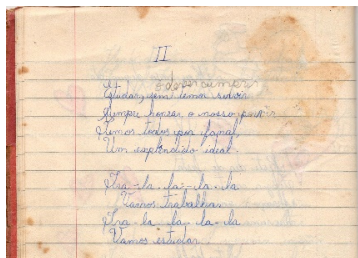 II
Estudar, sem temor
Sempre honrar o nosso
Temos todos por fanal,
Um explendido ideal.
Tra-la-la-la-la
Vamos trabalhar
Tra-la-la-la-la
Vamos estudar